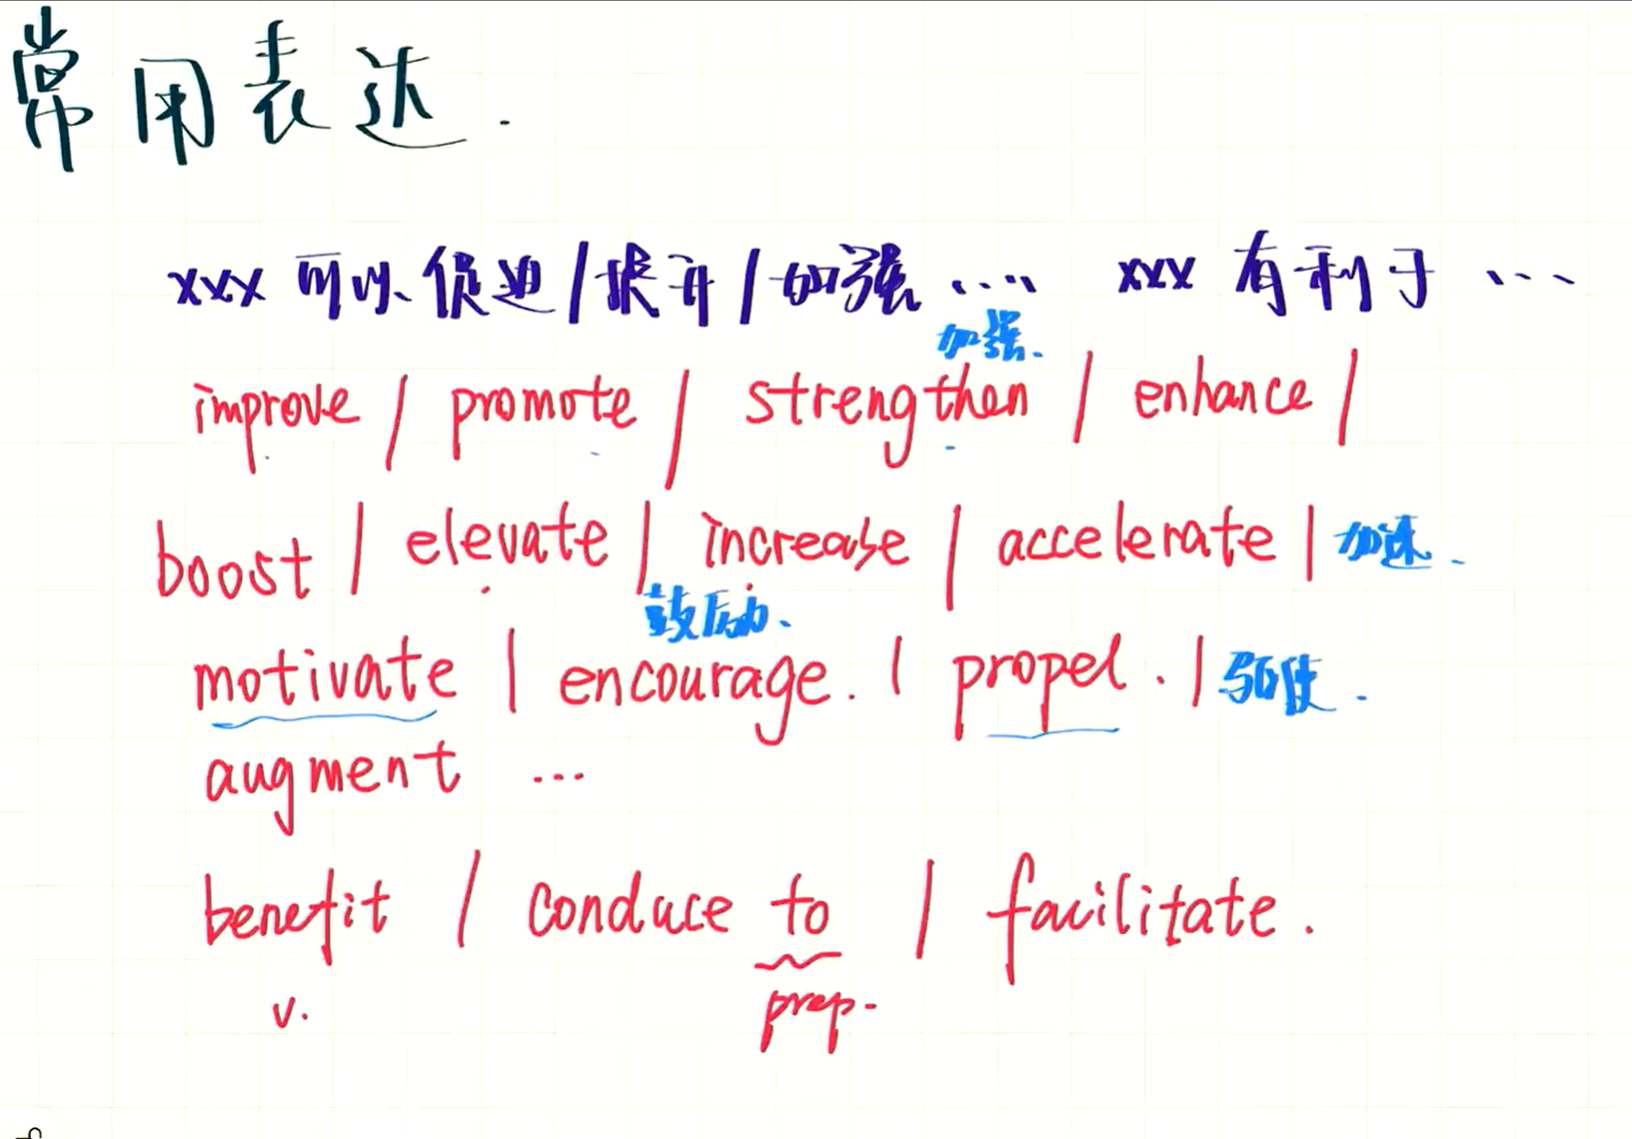 常用表达.
xxx 可以促进/提升/加强 .... xxx 有利于 ...
加强.
improve / promote / strengthen / enhance /
boost / elevate / increase / accelerate / 加速.
鼓励.
motivate / encourage. / propel. / 驱使.
augment ...
benefit / conduce to / facilitate.
v. prep.